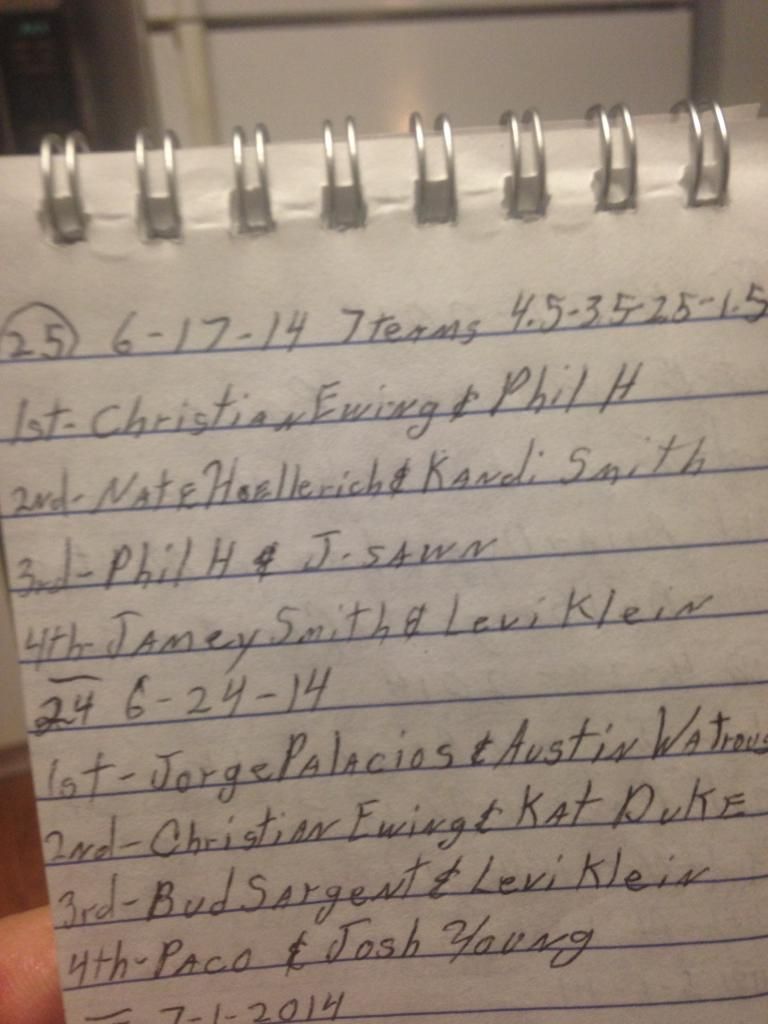 25 6-17-14 7 teams 4.5-3.5-2.5-1.5
1st- Christian Ewing & Phil H
2nd- Nate Hoellerich & Kandi Smith
3rd- Phil H & J. SAWN
4th- Jamey Smith & Levi Klein
24 6-24-14
1st- Jorge Palacios & Austin Watrous
2nd- Christian Ewing & Kat Duke
3rd- Bud Sargent & Levi Klein
4th- Paco & Josh Young
7-1-2014